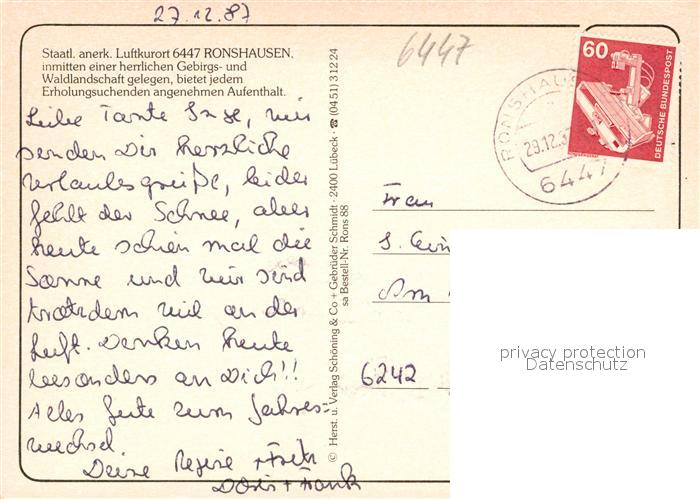 27.12.87
Staatl. anerk. Luftkurort 6447 RONSHAUSEN,
inmitten einer herrlichen Gebirgs- und
Waldlandschaft gelegen, bietet jedem
Erholungsuchenden angenehmen Aufenthalt.
Liebe Tante Inge, wir
senden Dir herzliche
Urlaubsgrüße, leider
fehlt der Schnee, aber
heute schien mal die
Sonne und wir sind
trotzdem viel an der
Luft. Denken heute
besonders an Dich!!
Alles Gute zum Jahres-
wechsel.
Deine Regine + Fritz
Doris + Frank
© Herst. u. Verlag Schöning & Co + Gebrüder Schmidt · 2400 Lübeck · ☎ (04 51) 3 12 24
sa Bestell-Nr. Rons 88
6447
60
DEUTSCHE BUNDESPOST
RONSHAUS
29.12.
6447
Frau
S.
Am
6242
privacy protection
Datenschutz